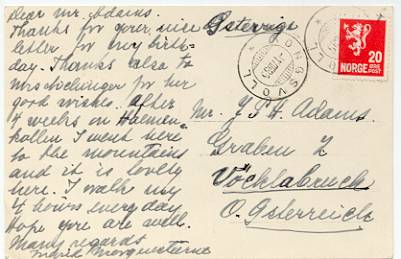 Dear Mr. Adams.
Thanks for your nice
letter for my birth-
day. Thanks also to
Mrs. for her
good wishes. After
4 weeks on Holmen-
kollen I went here
to the mountains
and it is lovely
here. I walk my
4 hours every day
Hope you are well.
Many regards
Østerrige
Mr. J. Adams.
Graben 2
Vöcklabruck
O. Österreich
NORGE
20
ØRE
POST